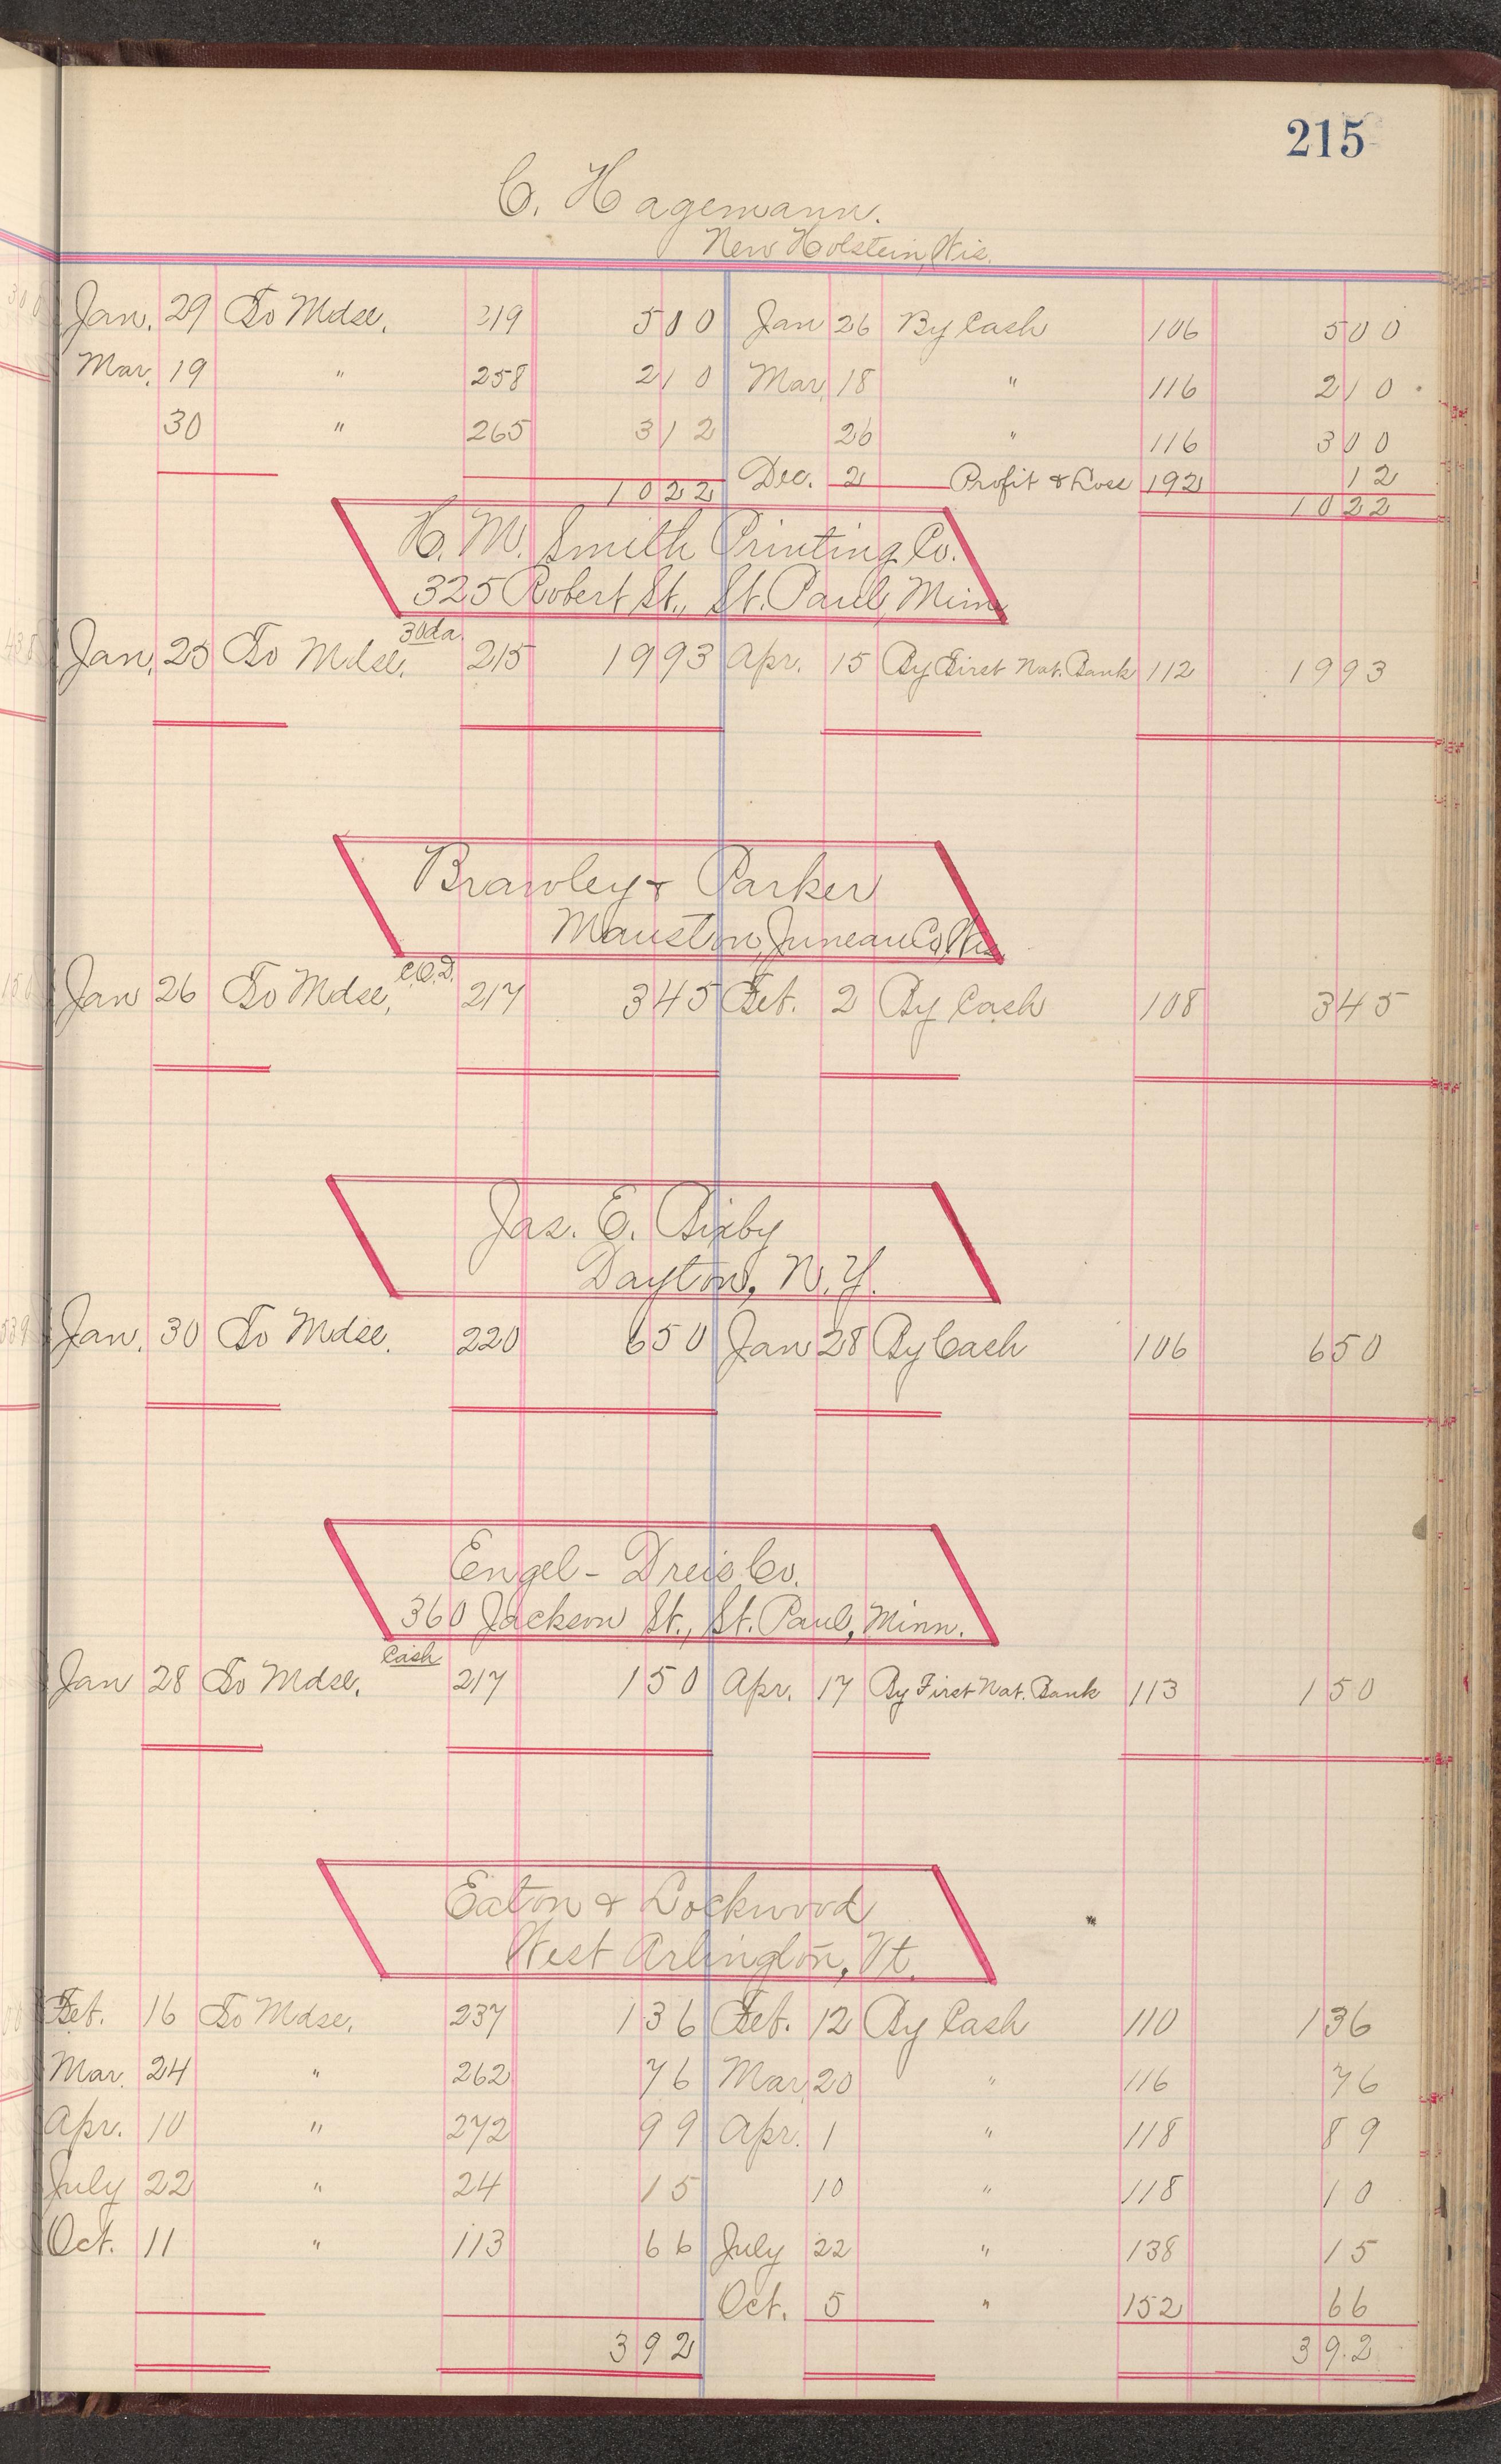 215
C. Hagemann.
New Holstein, Wis.
Jan. 29 To Mdse. 219 5 0 0 Jan 26 By Cash 106 5 0 0
Mar. 19 " 258 2 1 0 Mar. 18 " 116 2 1 0
30 " 265 3 1 2 26 " 116 3 0 0
Dec. 2 Profit & Loss 192 1 2
1 0 2 2 1 0 2 2
H. M. Smith Printing Co.
325 Robert St., St. Paul, Minn
30 da.
Jan. 25 To Mdse. 215 1 9 9 3 Apr. 15 By First Nat. Bank 112 1 9 9 3
Brawley & Parker
Mauston, Juneau Co, Wis.
C.O.D.
Jan 26 To Mdse. 217 3 4 5 Feb. 2 By Cash 108 3 4 5
Jas. E. Bixby
Dayton, N. Y.
Jan. 30 To Mdse. 220 6 5 0 Jan 28 By Cash 106 6 5 0
Engel - Dreis Co.
360 Jackson St., St. Paul, Minn.
Cash
Jan 28 To Mdse. 217 1 5 0 Apr. 17 By First Nat. Bank 113 1 5 0
Eaton & Lockwood
West Arlington, Vt.
Feb. 16 To Mdse. 237 1 3 6 Feb. 12 By Cash 110 1 3 6
Mar. 24 " 262 7 6 Mar 20 " 116 7 6
Apr. 10 " 272 9 9 Apr. 1 " 118 8 9
July 22 " 24 1 5 10 " 118 1 0
Oct. 11 " 113 6 6 July 22 " 138 1 5
Oct. 5 " 152 6 6
3 9 2 3 9 2